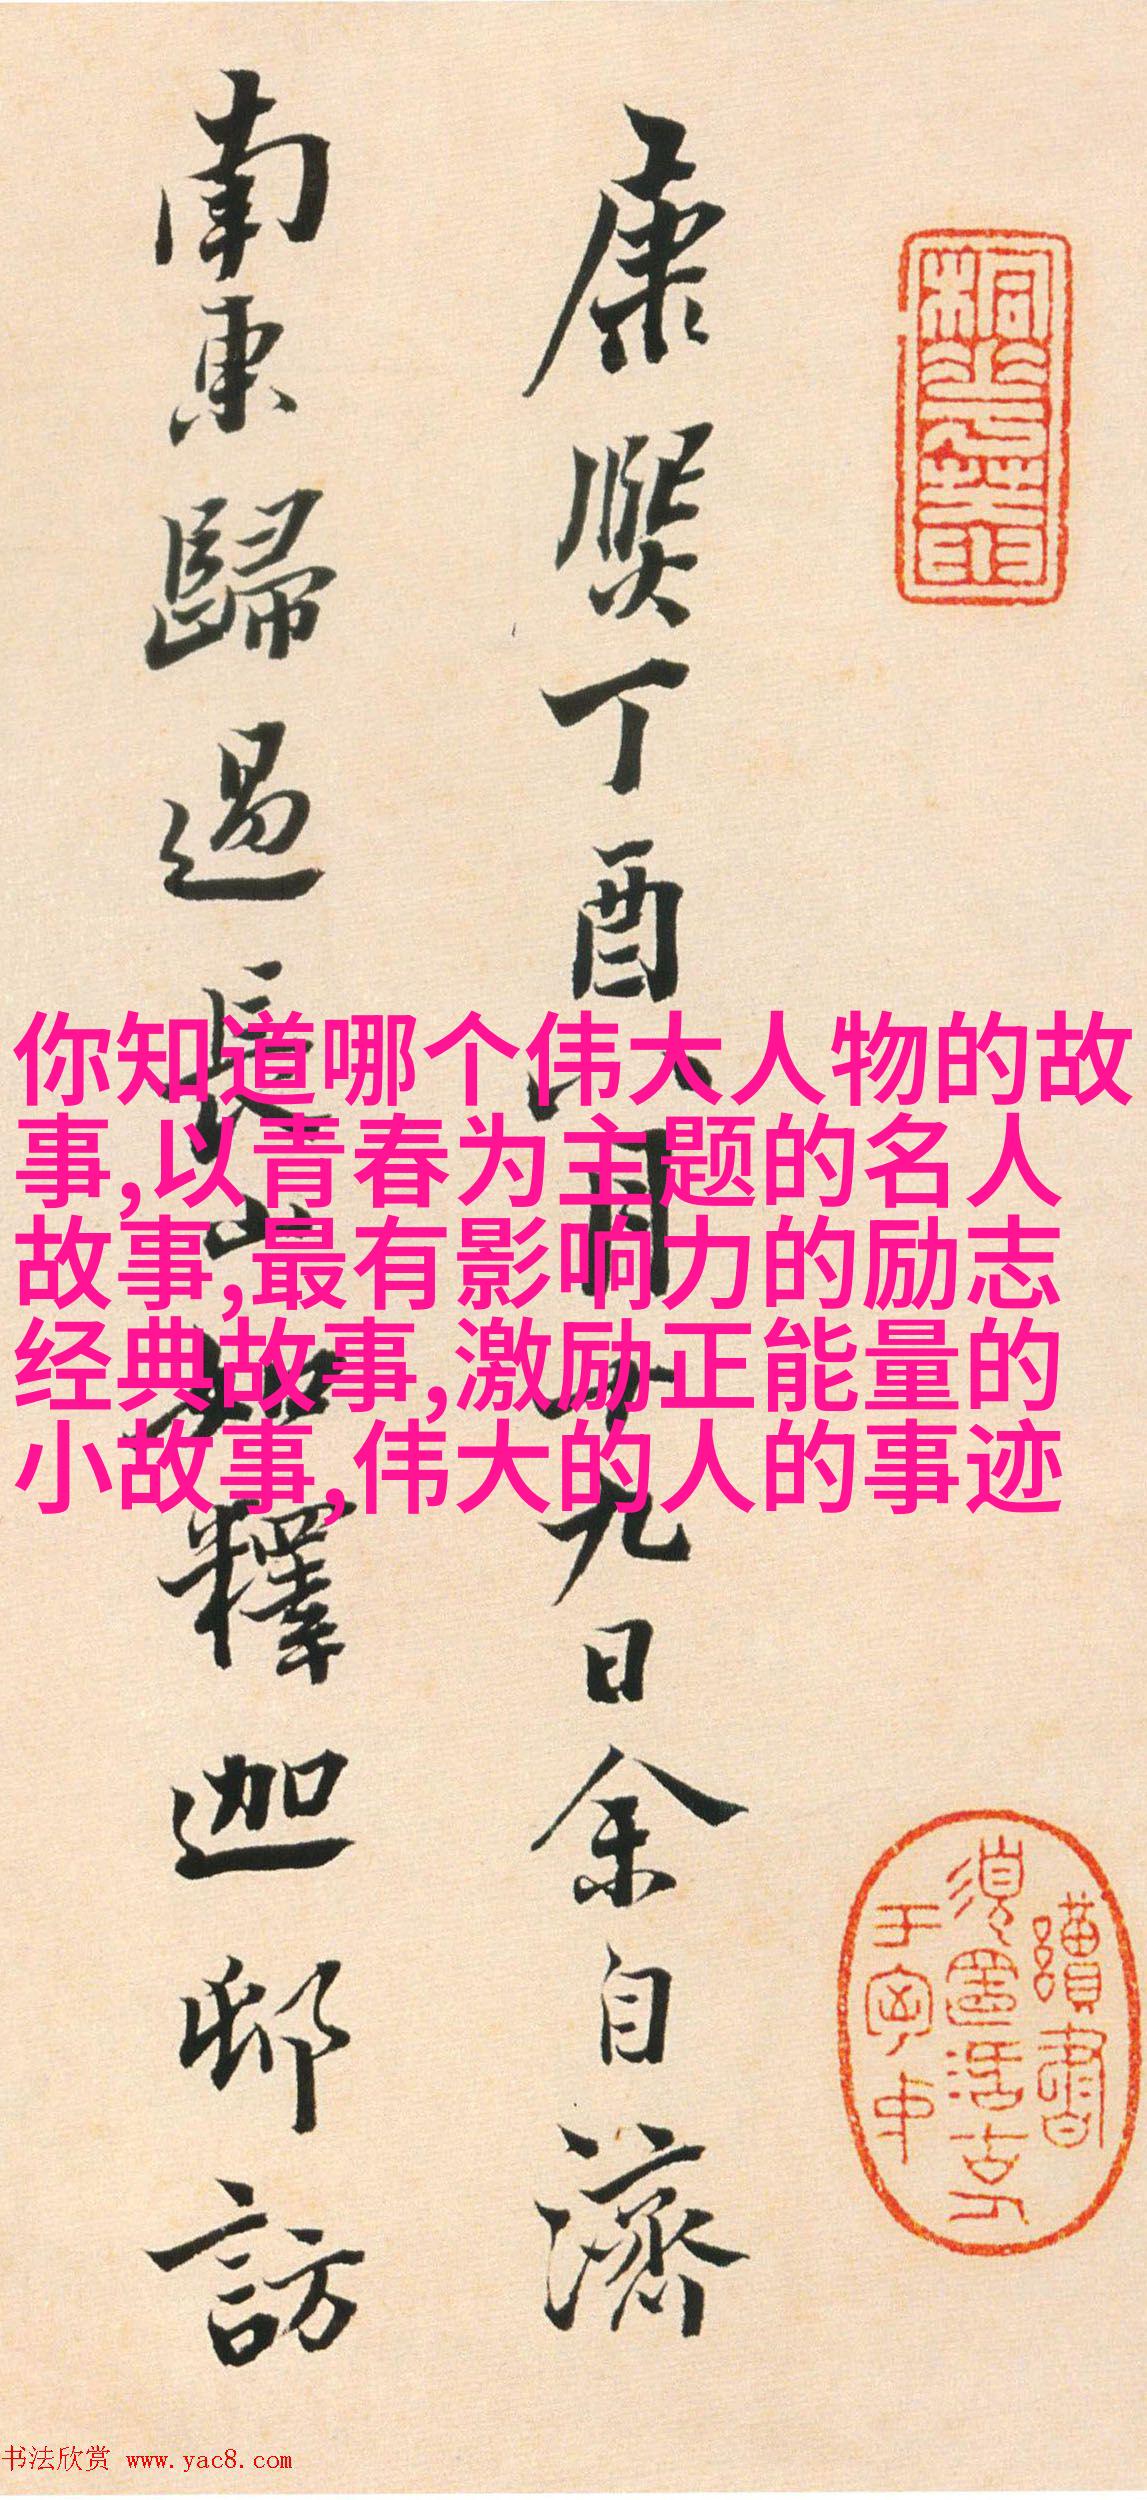 康熙丁酉八月十九日余自濟
南東歸過長山釋迦邸訪
你知道哪个伟大人物的故
事,以青春为主题的名人
故事,最有影响力的励志
经典故事,激励正能量的
小故事,伟大的人的事迹
书法欣赏 www.yac8.com